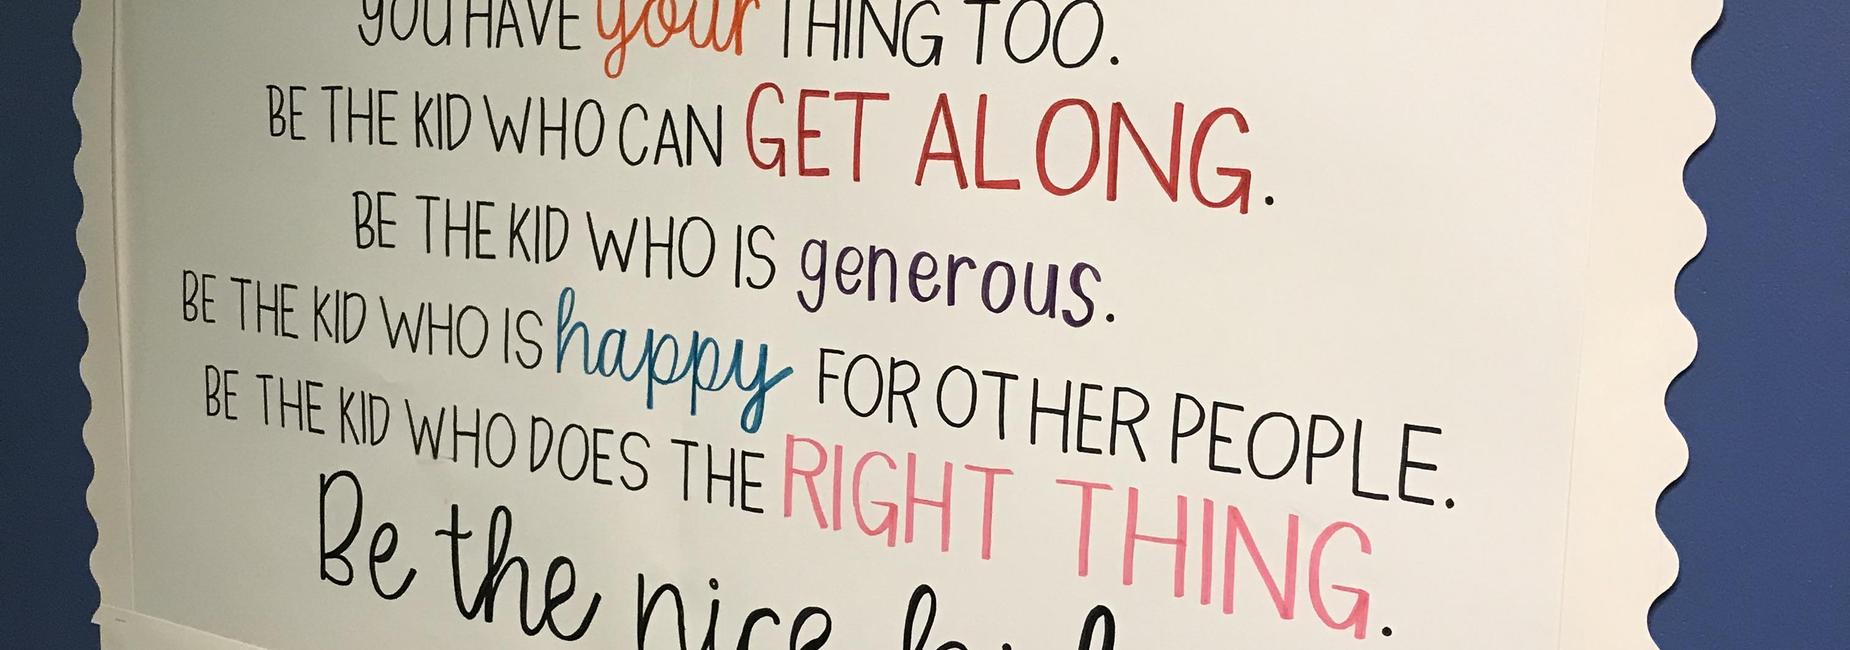 YOU HAVE your THING TOO.
BE THE KID WHO CAN GET ALONG.
BE THE KID WHO IS generous.
BE THE KID WHO IS happy FOR OTHER PEOPLE.
BE THE KID WHO DOES THE RIGHT THING.
Be the nice kid